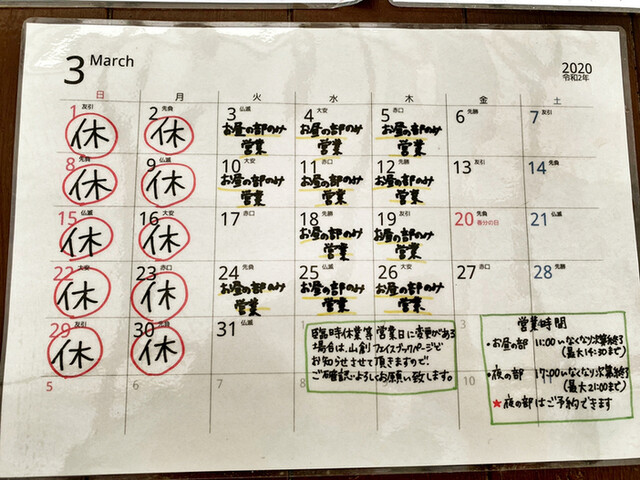 3 March
2020
令和2年
日 月 火 水 木 金 土
1 友引 2 先負 3 仏滅 4 大安 5 赤口 6 先勝 7 友引
休 休 お昼の部のみ営業 お昼の部のみ営業 お昼の部のみ営業
8 先負 9 仏滅 10 大安 11 赤口 12 先勝 13 友引 14 先負
休 休 お昼の部のみ営業 お昼の部のみ営業 お昼の部のみ営業
15 仏滅 16 大安 17 赤口 18 先勝 19 友引 20 先負 21 仏滅
春分の日
休 休 お昼の部のみ営業 お昼の部のみ営業
22 大安 23 赤口 24 先負 25 仏滅 26 大安 27 赤口 28 先勝
休 休 お昼の部のみ営業 お昼の部のみ営業 お昼の部のみ営業
29 友引 30 先負 31 仏滅
休 休
臨時休業等営業日に変更がある
場合は、山創フェイスブックページで
お知らせさせて頂きますので、
ご確認よろしくお願い致します。
営業時間
・お昼の部 11:00〜なくなり次第終了
(最大14:30まで)
・夜の部 17:00〜なくなり次第終了
(最大21:00まで)
★夜の部はご予約できます
5 10